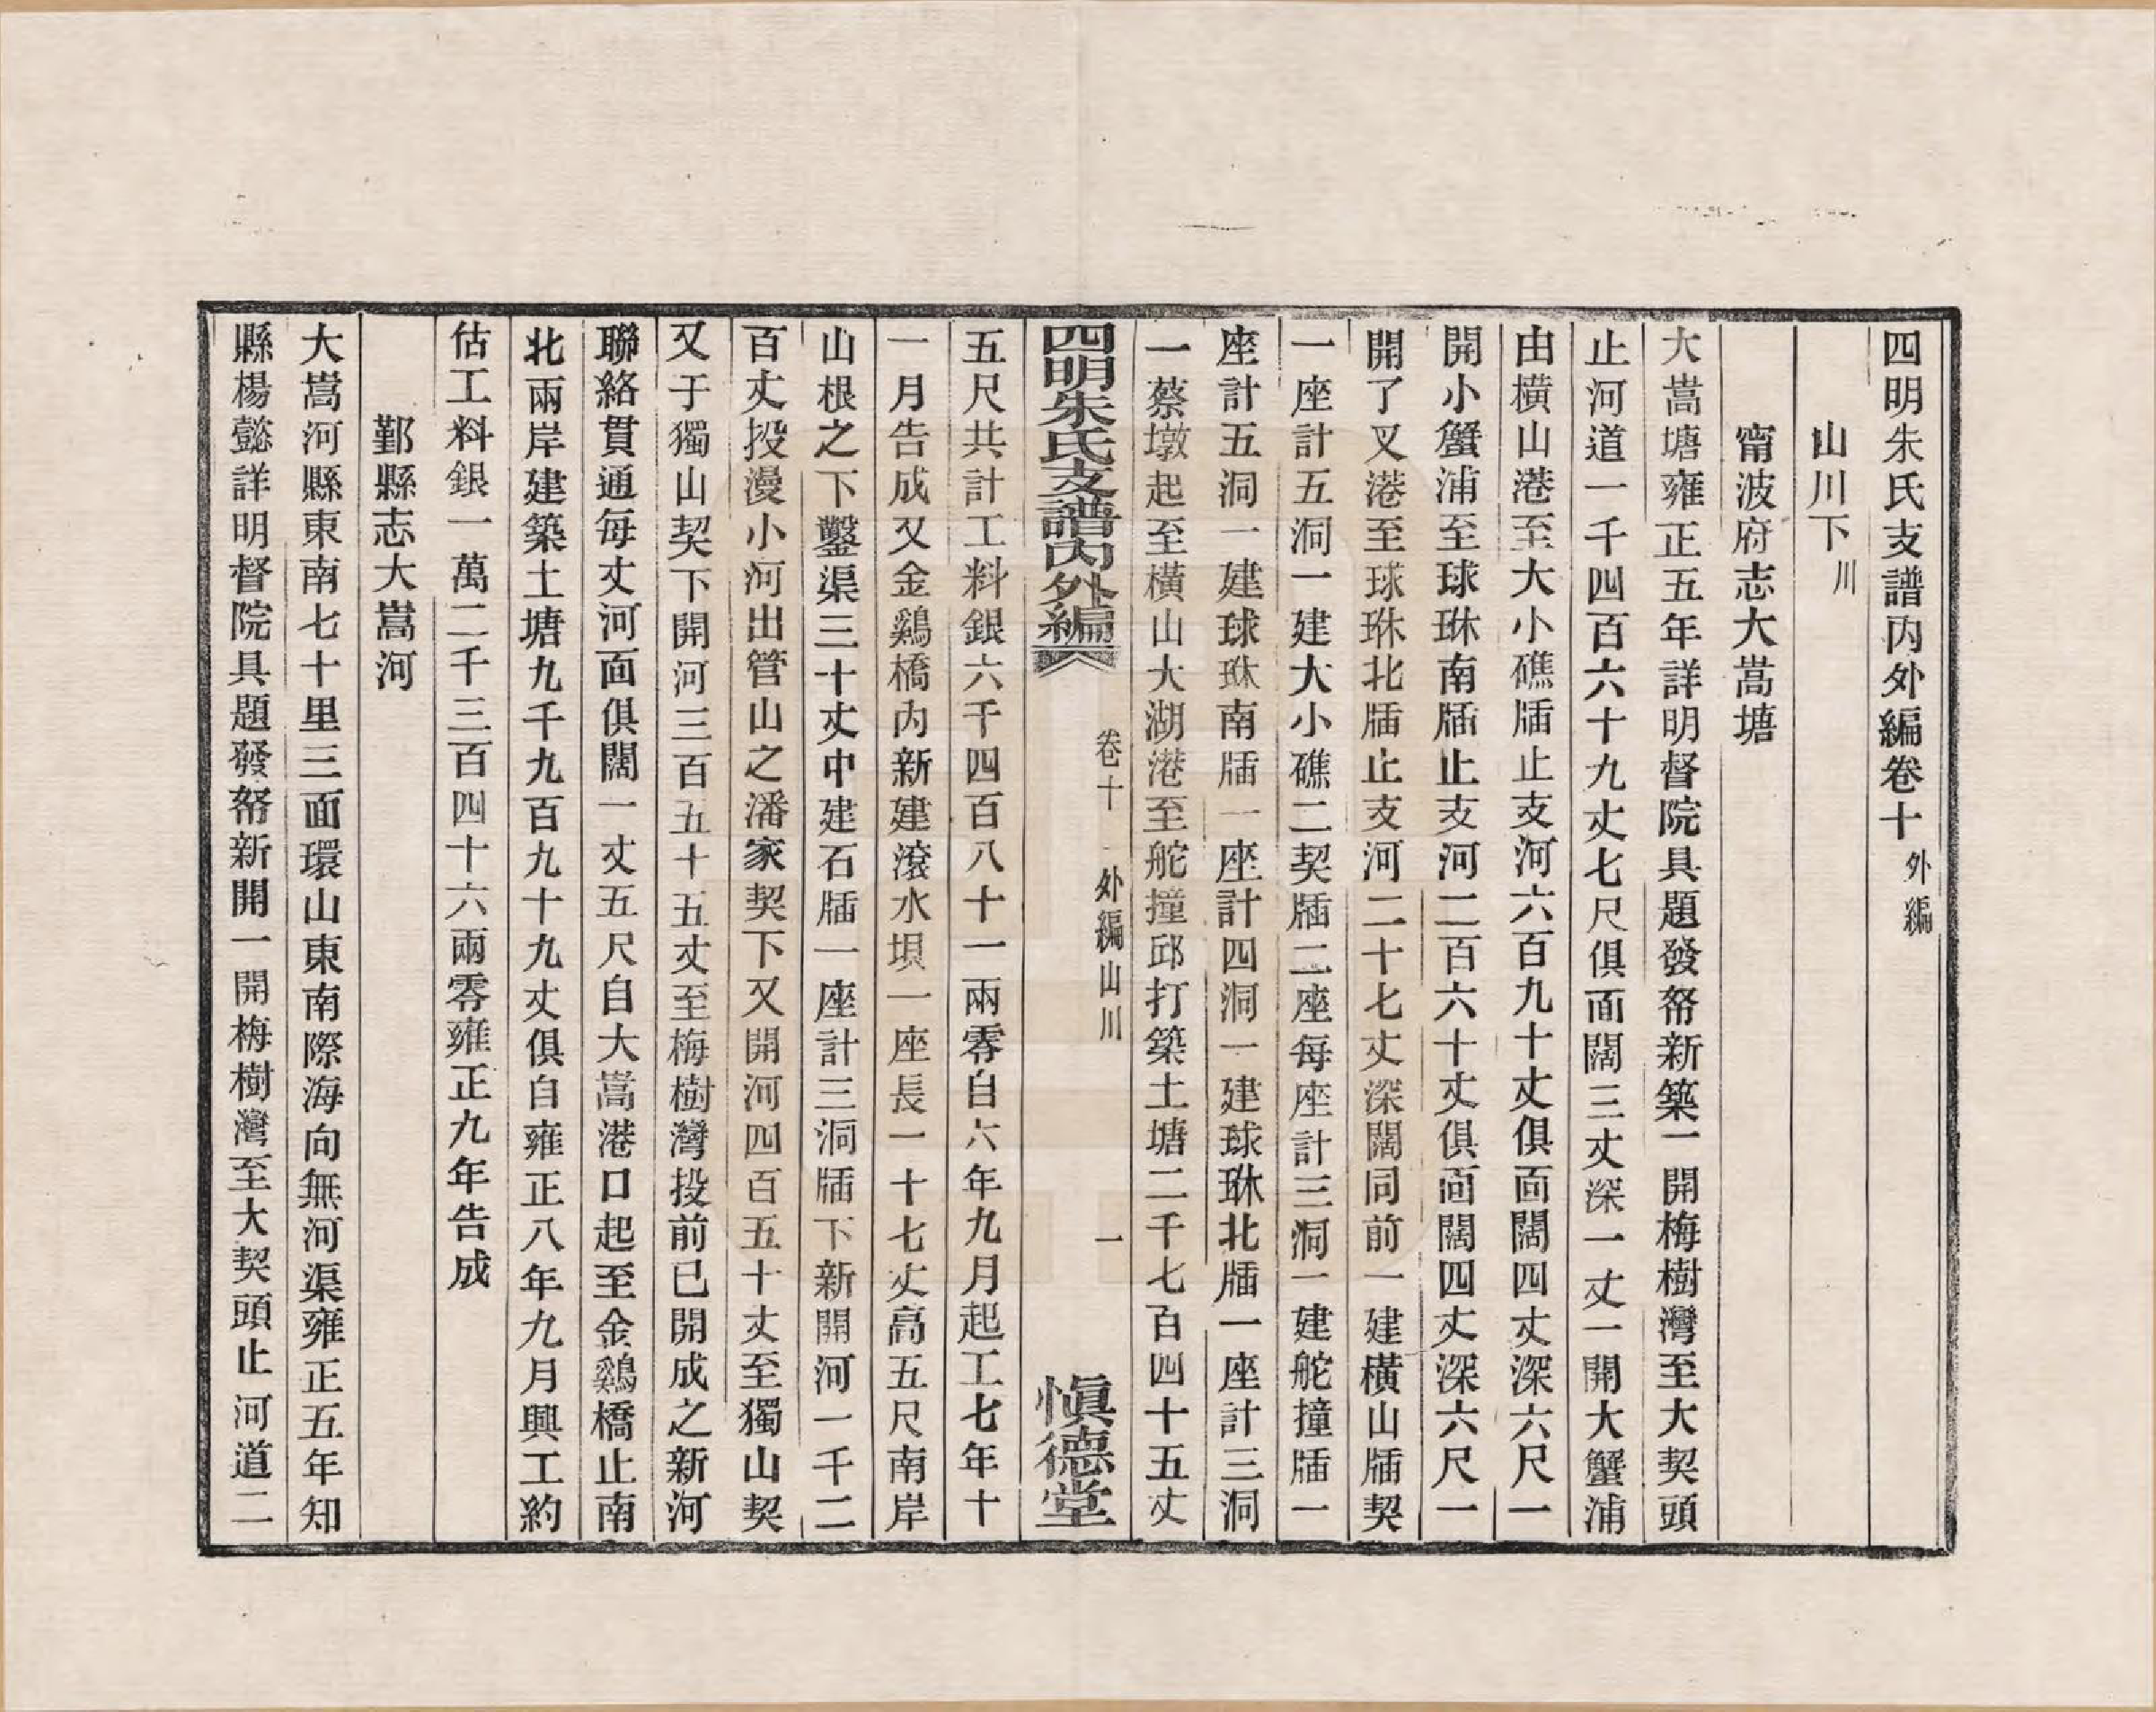 四明朱氏支譜內外編卷十 外編
山川下 川
甯波府志大嵩塘
大嵩塘雍正五年詳明督院具題發帑新築一開梅樹灣至大契頭
止河道一千四百六十九丈七尺俱面闊三丈深一丈一開大蟹浦
由橫山港至大小礁牐止支河六百九十丈俱面闊四丈深六尺一
開小蟹浦至球琳南牐止支河二百六十丈俱面闊四丈深六尺一
開了叉港至球琳北牐止支河二十七丈深闊同前一建橫山牐契
一座計五洞一建大小礁二契牐二座每座計三洞一建舵撞牐一
座計五洞一建球琳南牐一座計四洞一建球琳北牐一座計三洞
一蔡墩起至橫山大湖港至舵撞邱打築土塘二千七百四十五丈
四明朱氏支譜內外編 卷十 外編山川 一 愼德堂
五尺共計工料銀六千四百八十一兩零自六年九月起工七年十
一月告成又金鷄橋內新建滾水垻一座長一十七丈高五尺南岸
山根之下鑿渠三十丈中建石牐一座計三洞牐下新開河一千二
百丈投漫小河出管山之潘家契下又開河四百五十丈至獨山契
又于獨山契下開河三百五十五丈至梅樹灣投前已開成之新河
聯絡貫通每丈河面俱闊一丈五尺自大嵩港口起至金鷄橋止南
北兩岸建築土塘九千九百九十九丈俱自雍正八年九月興工約
估工料銀一萬二千三百四十六兩零雍正九年告成
鄞縣志大嵩河
大嵩河縣東南七十里三面環山東南際海向無河渠雍正五年知
縣楊懿詳明督院具題發帑新開一開梅樹灣至大契頭止河道二